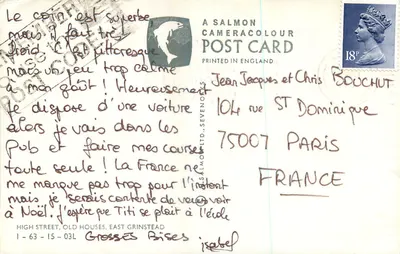 Le coin est superbe
mais il fait très
froid. C'est pittoresque
mais un peu trop calme
à mon goût ! Heureusement
je dispose d'une voiture
alors je vais dans les
Pub et faire mes courses
toute seule ! La France ne
me manque pas trop pour l'instant
mais je serais contente de vous voir
à Noël. J'espère que Titi se plaît à l'école
HIGH STREET, OLD HOUSES, EAST GRINSTEAD
1-63-15-03L
Grosses Bises
Isabel
A SALMON
CAMERACOLOUR
POST CARD
PRINTED IN ENGLAND.
SALMON LTD., SEVENOAKS
18P
Jean Jacques et Chris BOUCHUT
104 rue St Dominique
75007 PARIS
FRANCE